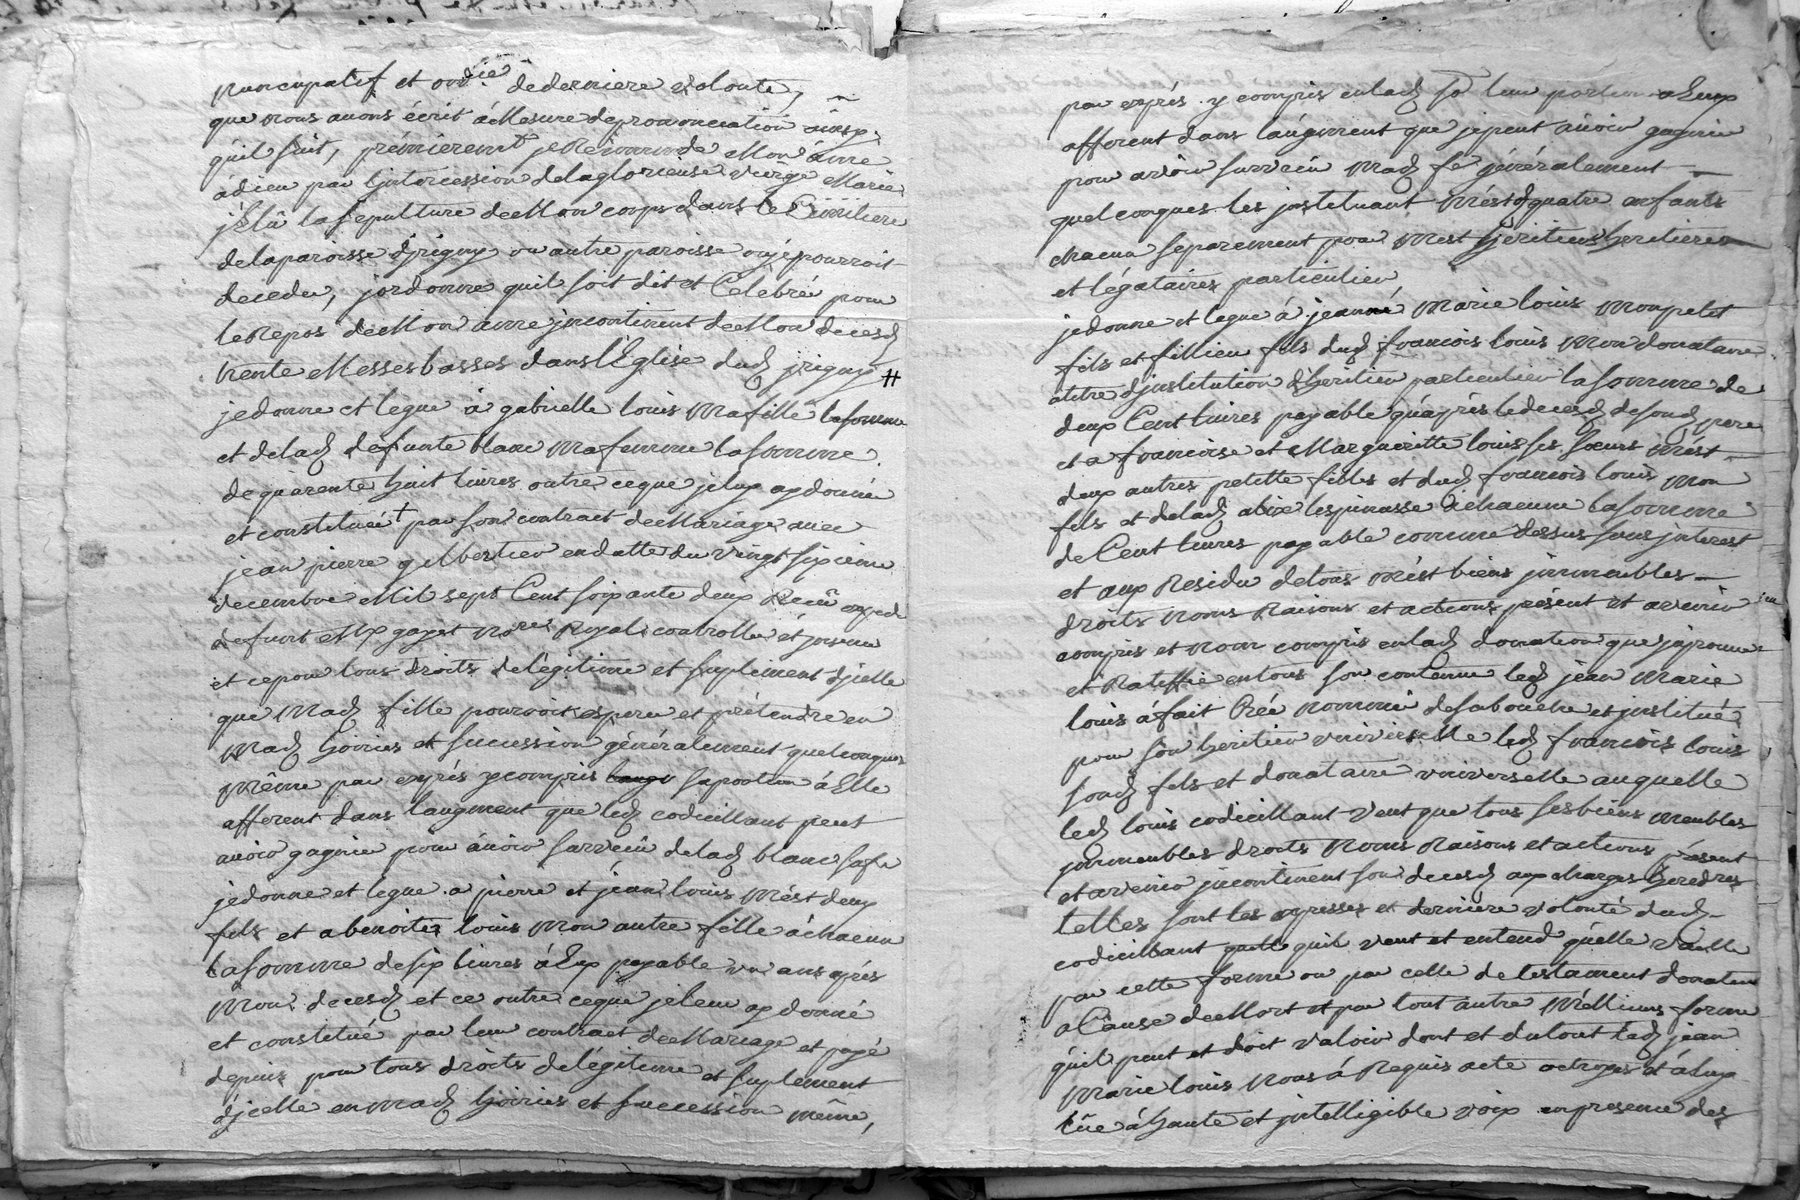 nuncupatif et ord.re de derniere volonte,
que nous auons écrit á Mesure de prononciation ainsy
quil suit, prémierem.t je Recommande Mon ame
á dieu par l'intercession de la glorieuse vierge Marie
j'Elû la sepulture de Mon corps dans le Cimitiere
de la paroisse d'jrigny ou autre paroisse ou je pourroit
deceder, jordonne quil soit dit et Celebré pour
le Repos de Mon ame jncontinent de Mon deces
trente Messes basses dans l'Eglise dud. jrigny #
je donne et legue á gabrielle louis Ma fille la somme
et de lad. defunte blanc Ma femme la somme
de quarente huit liures outre ce que je luy ay donné
et constitué + par son contract de Mariage auec
jean pierre gilbertier en datte du vingt sixieme
decembre Mil sept Cent soixante deux Recû
defunt Me gayet No.re Royal controllé et jnsinué
et ce pour tous droits de légitime et suplement d'jcelle
que Mad. fille pourroit esperer et prétendre en
Mad. hoirie et succession généralement quelconques
Même par exprés y compris sa portion á Elle
afferent dans laugment que led. codicillant peut
auoir gagnée pour áuoir survécu de lad. blanc sa fe
je donne et legue a pierre et jéan louis Mést deux
fils et a benoite louis Mon autre fille á chacun
la somme de six liures á Eux payable un ans aprés
Mon deces et ce outre ce que je leur ay donné
et constitué par leur contract de Mariage et payé
depuis pour tous droits de légitime et suplement
d'jcelle en Mad. hoirie et succession Même,
par exprés y compris en lad. leur portion a Eux
afferent dans láugment que je peut áuoir gagnée
pour avoir survécu Mad. fe généralement
quelconques les jnstituant Mést d. quatre enfants
chacun separement pour Mest heritiers heritieres
et légataires particulier
je donne et legue á jeanne Marie louis Mon petit
fils et fillieu fils dud. francois louis Mon donataire
a titre d'jnstitution d'heritier particulier la somme de
deux Cent liures payable quaprés le deces de sond. pere
et a francoise et Margueritte louis ses soeurs Mést
deux autres petitte filles et dud. francois louis Mon
fils et de lad. alix lespinasse á chacune la somme
de Cent liures payable comme dessus sans jnterest
et aux Residu de tous Mést biens jmmeubles
droits Noms Raisons et actions présent et avenir
compris et non compris en lad. donation que j'aprouve
et Ratiffie en tous son contenue led. jean Marie
louis á fait Creé Nommé de sa bouche et jnstitué
pour son heritier universelle led. francois louis
sond. fils et donataire universelle auquelle
led. louis codicillant veut que tous ses biens meubles
jmmeubles droits Noms Raisons et actions présent
et avenir jncontinent son deces aux charges heredres
telles sont les expresses et derniere volonté dud.
codicillant quil veut et entend quelle vaille
par cette forme ou par celle de testament donation
a Cause de Mort et par tout autre Méllieure forme
quil peut et doit valoir dont et du tout led. jean
Marie louis Nous á Requis acte octroyé et á luy
lûe á haute et jntelligible voix en presence des